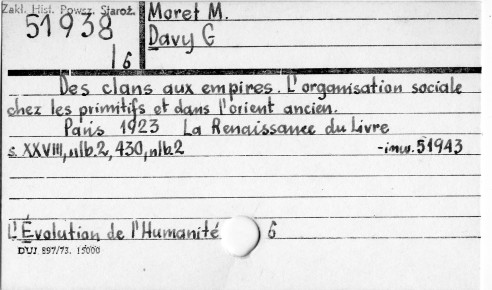 Zakł. Hist. Powsz. Staroż.
51938
16
Moret M.
Davy G
Des clans aux empires. L'organisation sociale
chez les primitifs et dans l'orient ancien.
Paris 1923 La Renaissance du Livre
s. XXVIII, nlb.2, 430, nlb2 -inw. 51943
L'Évolution de l'Humanité 6
DUJ 897/73. 15000